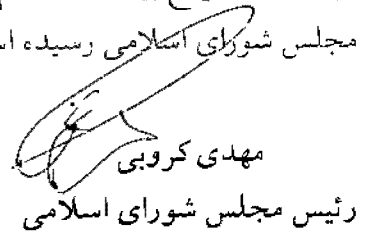 مجلس شورای اسلامی رسیده
مهدی کروبی
رئیس مجلس شورای اسلامی